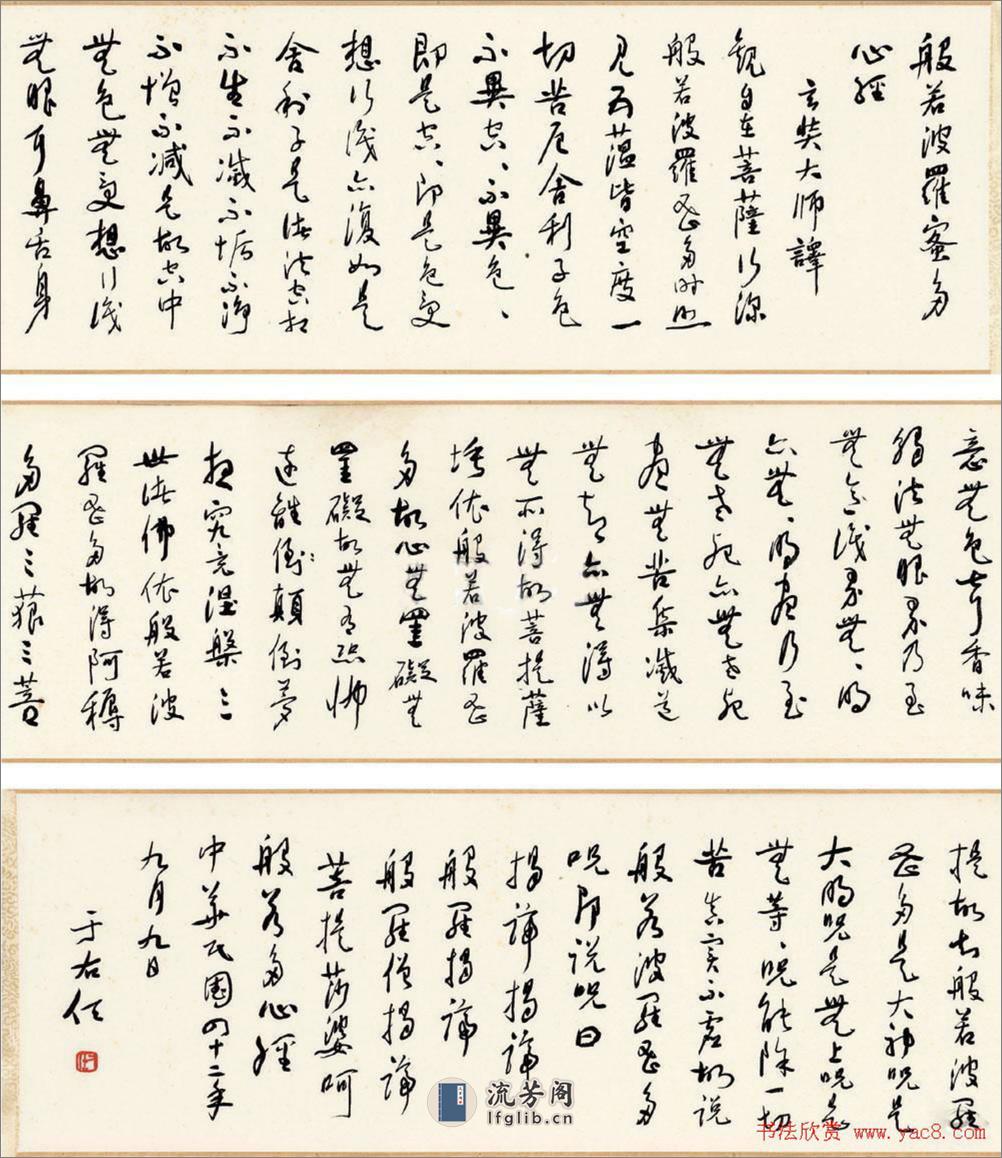 般若波羅蜜多
心經
玄奘大師譯
觀自在菩薩行深
般若波羅蜜多時照
見五蘊皆空度一
切苦厄舍利子色
不異空、不異色、
即是空、即是色受
想行識亦復如是
舍利子是諸法空相
不生不滅不垢不淨
不增不減是故空中
無色無受想行識
無眼耳鼻舌身
意無色聲香味
觸法無眼界乃至
無意識界無、明
亦無、明盡乃至
無老死亦無老死
盡無苦集滅道
無智亦無得以
無所得故菩提薩
埵依般若波羅蜜
多故心無罣礙無
罣礙故無有恐怖
遠離倒顛倒夢
想究竟涅槃三
世諸佛依般若波
羅蜜多故得阿耨
多羅三藐三菩
提故知般若波羅
蜜多是大神咒是
大明咒是無上咒是
無等、咒能除一切
苦真實不虛故說
般若波羅蜜多
咒即說咒曰
揭諦揭諦
般羅揭諦
般羅僧揭諦
菩提莎婆呵
般若多心經
中華民國四十二年
九月九日
于右任
流芳阁
lfglib.cn
书法欣赏 www.yac8.com